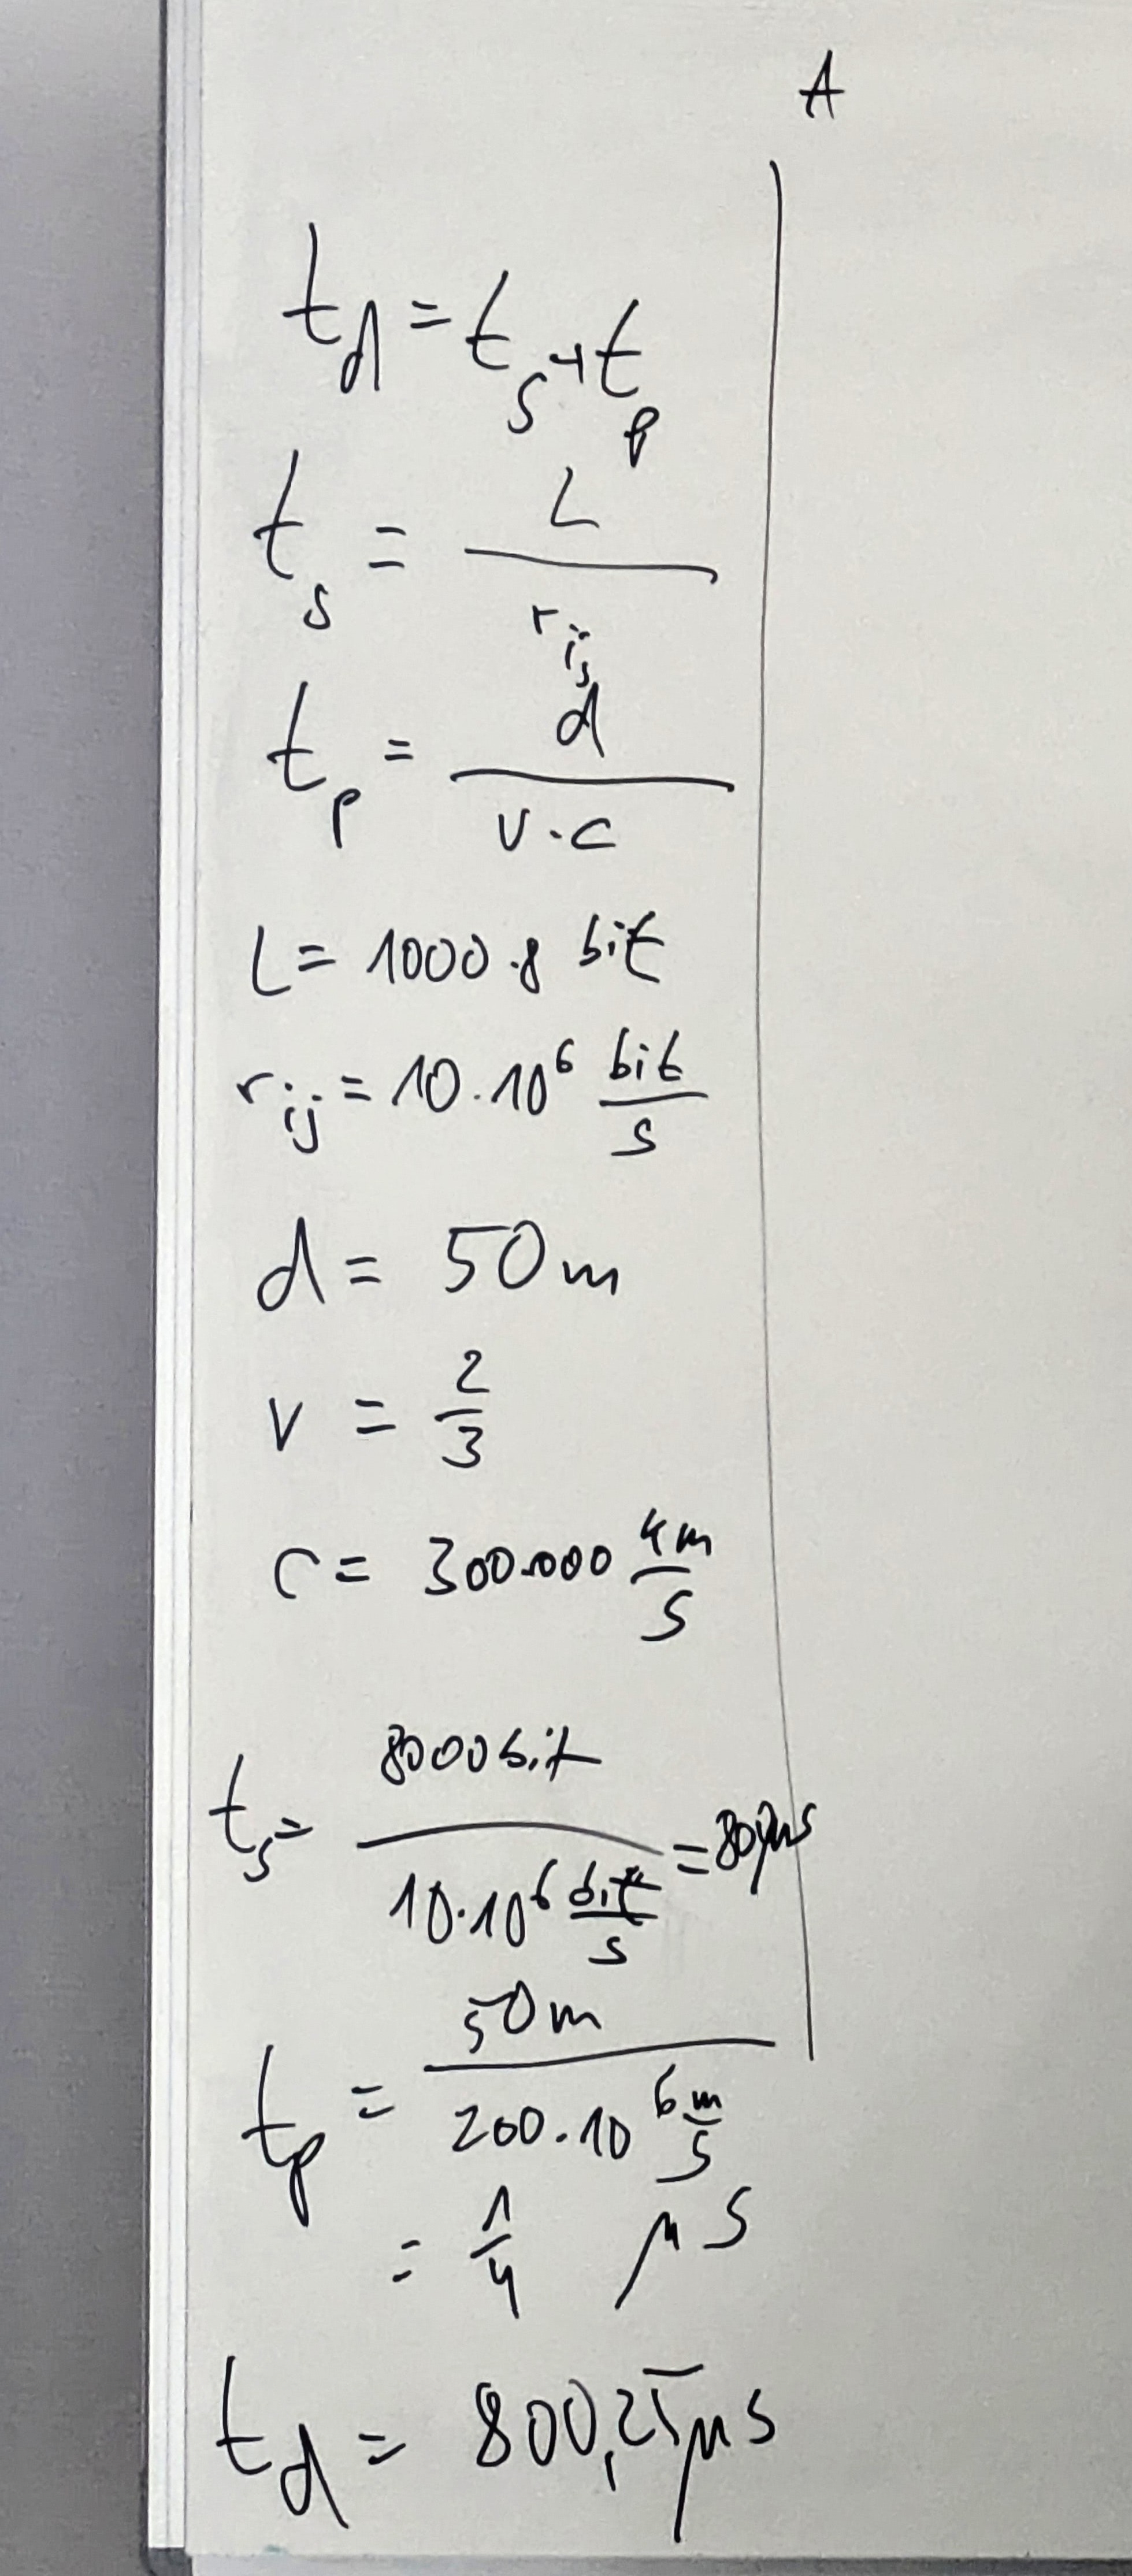 A
t_d = t_s + t_p
t_s = L / r_ij
t_p = d / (v · c)
L = 1000 · 8 bit
r_ij = 10 · 10^6 bit/s
d = 50 m
v = 2/3
c = 300.000 km/s
t_s = 8000 bit / (10 · 10^6 bit/s) = 800 µs
t_p = 50 m / (200 · 10^6 m/s)
= 1/4 µs
t_d = 800,25 µs